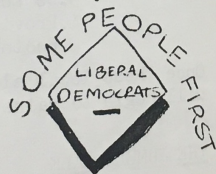 SOME PEOPLE FIRST
LIBERAL
DEMOCRATS